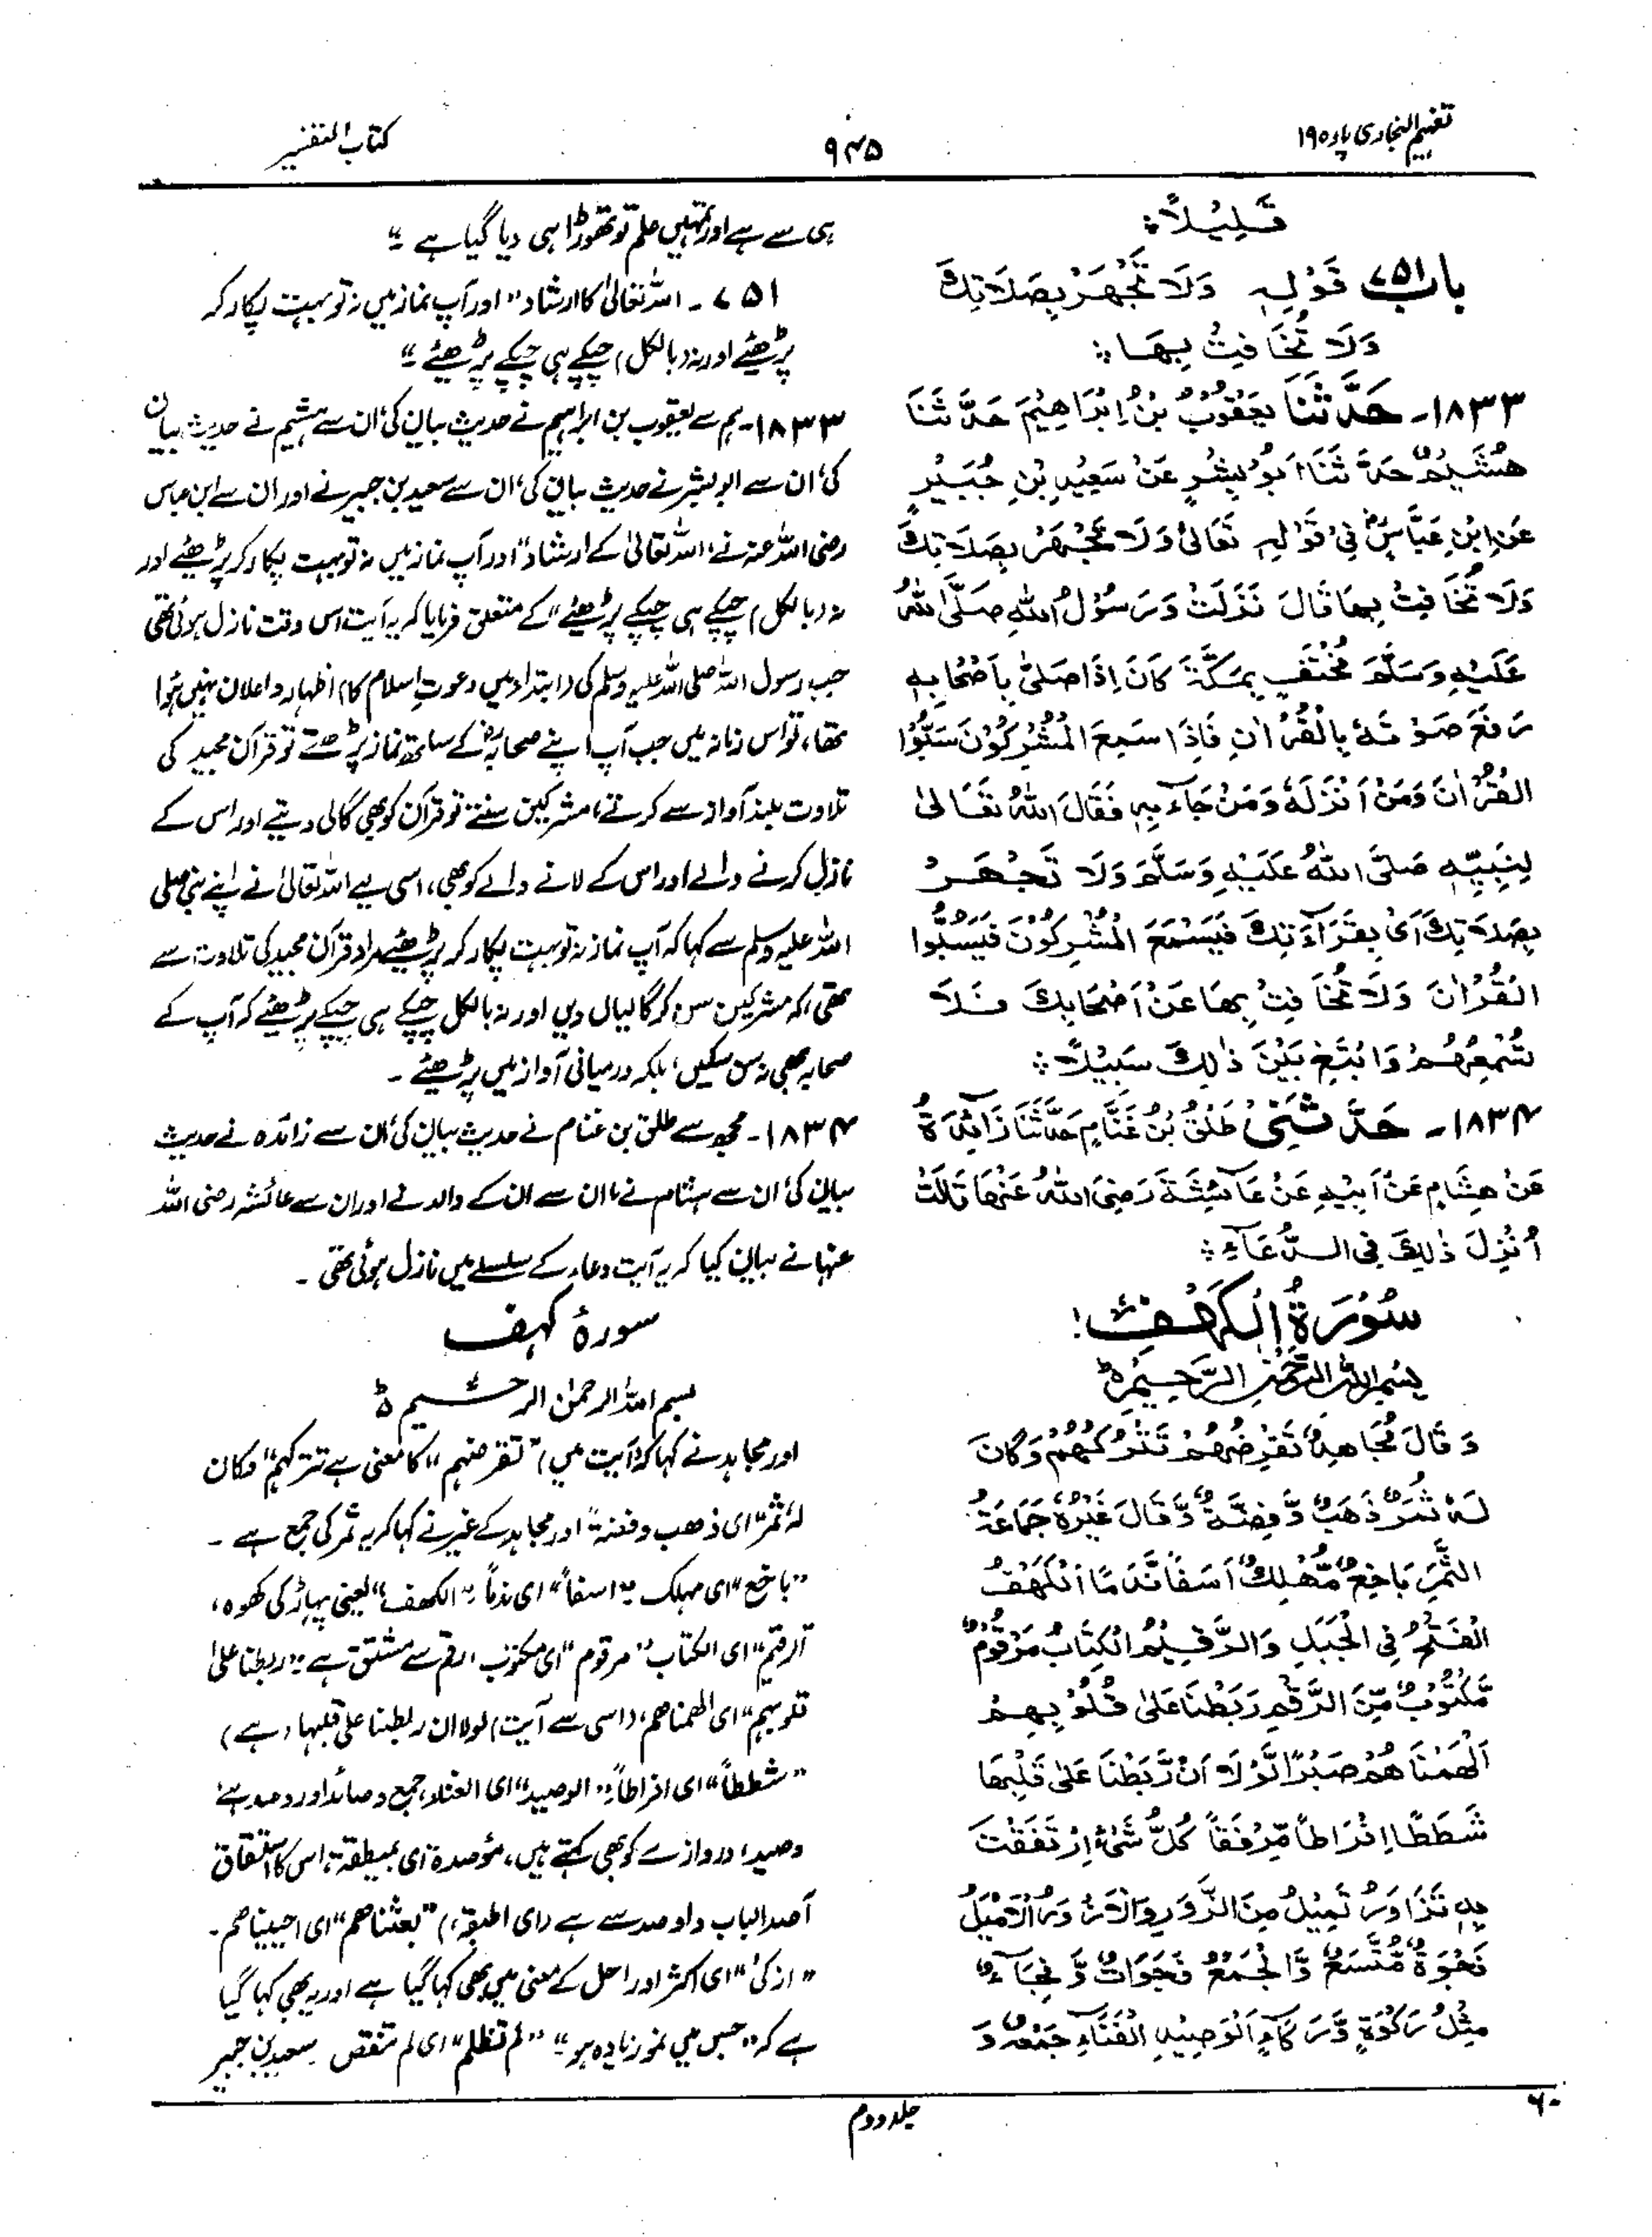 تفہیم البخاری پارہ ۱۹
۹۴۵
کتاب التفسیر
قَلِیْلًا ؞
باب ۷۵۱ قَوْلِہٖ وَلَا تَجْهَرْ بِصَلَاتِكَ
وَلَا تُخَافِتْ بِهَا ؞
۱۸۳۳۔ حَدَّثَنَا یَعْقُوْبُ بْنُ اِبْرَاهِیْمَ حَدَّثَنَا
هُشَیْمٌ حَدَّثَنَا اَبُوْ بِشْرٍ عَنْ سَعِیْدِ بْنِ جُبَیْرٍ
عَنِ ابْنِ عَبَّاسٍ فِیْ قَوْلِہٖ تَعَالٰی وَلَا تَجْهَرْ بِصَلَاتِكَ
وَلَا تُخَافِتْ بِهَا قَالَ نَزَلَتْ وَرَسُوْلُ اللهِ صَلَّی اللهُ
عَلَیْهِ وَسَلَّمَ مُخْتَفٍ بِمَكَّةَ كَانَ اِذَا صَلّٰی بِاَصْحَابِهٖ
رَفَعَ صَوْتَهٗ بِالْقُرْاٰنِ فَاِذَا سَمِعَ الْمُشْرِكُوْنَ سَبُّوْا
الْقُرْاٰنَ وَمَنْ اَنْزَلَهٗ وَمَنْ جَآءَ بِهٖ فَقَالَ اللهُ تَعَالٰی
لِنَبِیِّهٖ صَلَّی اللهُ عَلَیْهِ وَسَلَّمَ وَلَا تَجْهَرْ
بِصَلَاتِكَ اَیْ بِقِرَآءَتِكَ فَیَسْمَعَ الْمُشْرِكُوْنَ فَیَسُبُّوا
الْقُرْاٰنَ وَلَا تُخَافِتْ بِهَا عَنْ اَصْحَابِكَ فَلَا
تُسْمِعُهُمْ وَابْتَغِ بَیْنَ ذٰلِكَ سَبِیْلًا ؞
۱۸۳۴۔ حَدَّثَنِیْ طَلْقُ بْنُ غَنَّامٍ حَدَّثَنَا زَآئِدَةُ
عَنْ هِشَامٍ عَنْ اَبِیْهِ عَنْ عَآئِشَةَ رَضِیَ اللهُ عَنْهَا قَالَتْ
اُنْزِلَ ذٰلِكَ فِی الدُّعَآءِ ؞
سُوْرَةُ الْكَهْفِ!
بِسْمِ اللهِ الرَّحْمٰنِ الرَّحِیْمِ ۵
وَقَالَ مُجَاهِدٌ تَقْرِضُهُمْ تَتْرُكُهُمْ وَكَانَ
لَهٗ ثَمَرٌ ذَهَبٌ وَّفِضَّةٌ وَّقَالَ غَیْرُهٗ جَمَاعَةُ
الثَّمَرِ بَاخِعٌ مُّهْلِكٌ اَسَفًا نَّدَمًا اَلْكَهْفُ
الْفَتْحُ فِی الْجَبَلِ وَالرَّقِیْمُ الْكِتَابُ مَرْقُوْمٌ
مَّكْتُوْبٌ مِّنَ الرَّقْمِ رَبَطْنَا عَلٰی قُلُوْبِهِمْ
اَلْهَمْنَاهُمْ صَبْرًا لَّوْلَا اَنْ رَّبَطْنَا عَلٰی قَلْبِهَا
شَطَطًا اِفْرَاطًا مِّرْفَقًا كُلُّ شَیْءٍ اِرْتَفَقْتَ
بِهٖ تَزَاوَرُ تَمِیْلُ مِنَ الزَّوَرِ وَالْاَزْوَرُ الْاَمْیَلُ
فَجْوَةٌ مُّتَّسَعٌ وَّالْجَمْعُ فَجَوَاتٌ وَّفِجَآءٌ
مِثْلُ رَكْوَةٍ وَّرَكَآءٍ اَلْوَصِیْدِ الْفَنَآءِ جَمْعُهٗ وَ
ہی سے ہے اور تمہیں علم تو تھوڑا ہی دیا گیا ہے ؞"
۷۵۱۔ اللہ تعالیٰ کا ارشاد "اور آپ نماز میں نہ تو بہت پکار کر
پڑھئے اور نہ (بالکل) چپکے ہی چپکے پڑھئے ؞"
۱۸۳۳۔ ہم سے یعقوب بن ابراہیم نے حدیث بیان کی، ان سے ہشیم نے حدیث بیان
کی، ان سے ابوبشر نے حدیث بیان کی، ان سے سعید بن جبیر نے اور ان سے ابن عباس
رضی اللہ عنہ نے، اللہ تعالیٰ کے ارشاد "اور آپ نماز میں نہ تو بہت پکار کر پڑھئے اور
نہ (بالکل) چپکے ہی چپکے پڑھئے" کے متعلق فرمایا کہ یہ آیت اس وقت نازل ہوئی تھی
جب رسول اللہ صلی اللہ علیہ وسلم کی (ابتداء میں دعوتِ اسلام کا) اظہار و اعلان نہیں ہوا
تھا، تو اس زمانہ میں جب آپ اپنے صحابہؓ کے ساتھ نماز پڑھتے تو قرآن مجید کی
تلاوت بلند آواز سے کرتے، مشرکین سنتے تو قرآن کو بھی گالی دیتے اور اس کے
نازل کرنے والے اور اس کے لانے والے کو بھی، اسی لیے اللہ تعالیٰ نے اپنے نبی صلی
اللہ علیہ وسلم سے کہا کہ آپ نماز نہ تو بہت پکار کر پڑھیئے (مراد قرآن مجید کی تلاوت سے
تھی) کہ مشرکین سن کر گالیاں دیں اور نہ بالکل چپکے ہی چپکے پڑھئے کہ آپ کے
صحابہ بھی نہ سن سکیں، بلکہ درمیانی آواز میں پڑھئے ۔
۱۸۳۴۔ مجھ سے طلق بن غنام نے حدیث بیان کی، ان سے زائدہ نے حدیث
بیان کی، ان سے ہشام نے، ان سے ان کے والد نے اور ان سے عائشہ رضی اللہ
عنہا نے بیان کیا کہ یہ آیت دعاء کے سلسلے میں نازل ہوئی تھی ۔
سورۂ کہف
بسم اللہ الرحمٰن الرحیم ۵
اور مجاہد نے کہا کہ (آیت میں) "تقرضہم" کا معنی ہے تترکہم "وکان
لہ ثمر" ای ذھب وفضۃ" اور مجاہد کے غیر نے کہا کہ یہ ثمر کی جمع ہے ۔
"باخع" ای مہلک "اسفاً" ای ندماً "الکھف" یعنی پہاڑ کی کھوہ،
"الرقیم" ای الکتاب "مرقوم" ای مکتوب، رقم سے مشتق ہے "ربطنا علیٰ
قلوبہم" ای الھمناھم، (اسی سے آیت) لولا ان ربطنا علیٰ قلبہا (ہے)
"شططاً" ای افراطاً "الوصید" ای الفناء، جمع وصائد اور وصد ہے
وصید، دروازے کو بھی کہتے ہیں، مؤصدۃ ای مطبقۃ، اس کا اشتقاق
آصد الباب و اوصد سے ہے (ای اطبقہ) "بعثناھم" ای احییناھم ۔
"ازکیٰ" ای اکثر اور احل کے معنی میں بھی کہا گیا ہے اور یہ بھی کہا گیا
ہے کہ "جس میں نمو زیادہ ہو" "لم تظلم" ای لم تنقص سعید بن جبیر
۶۰
جلد دوم